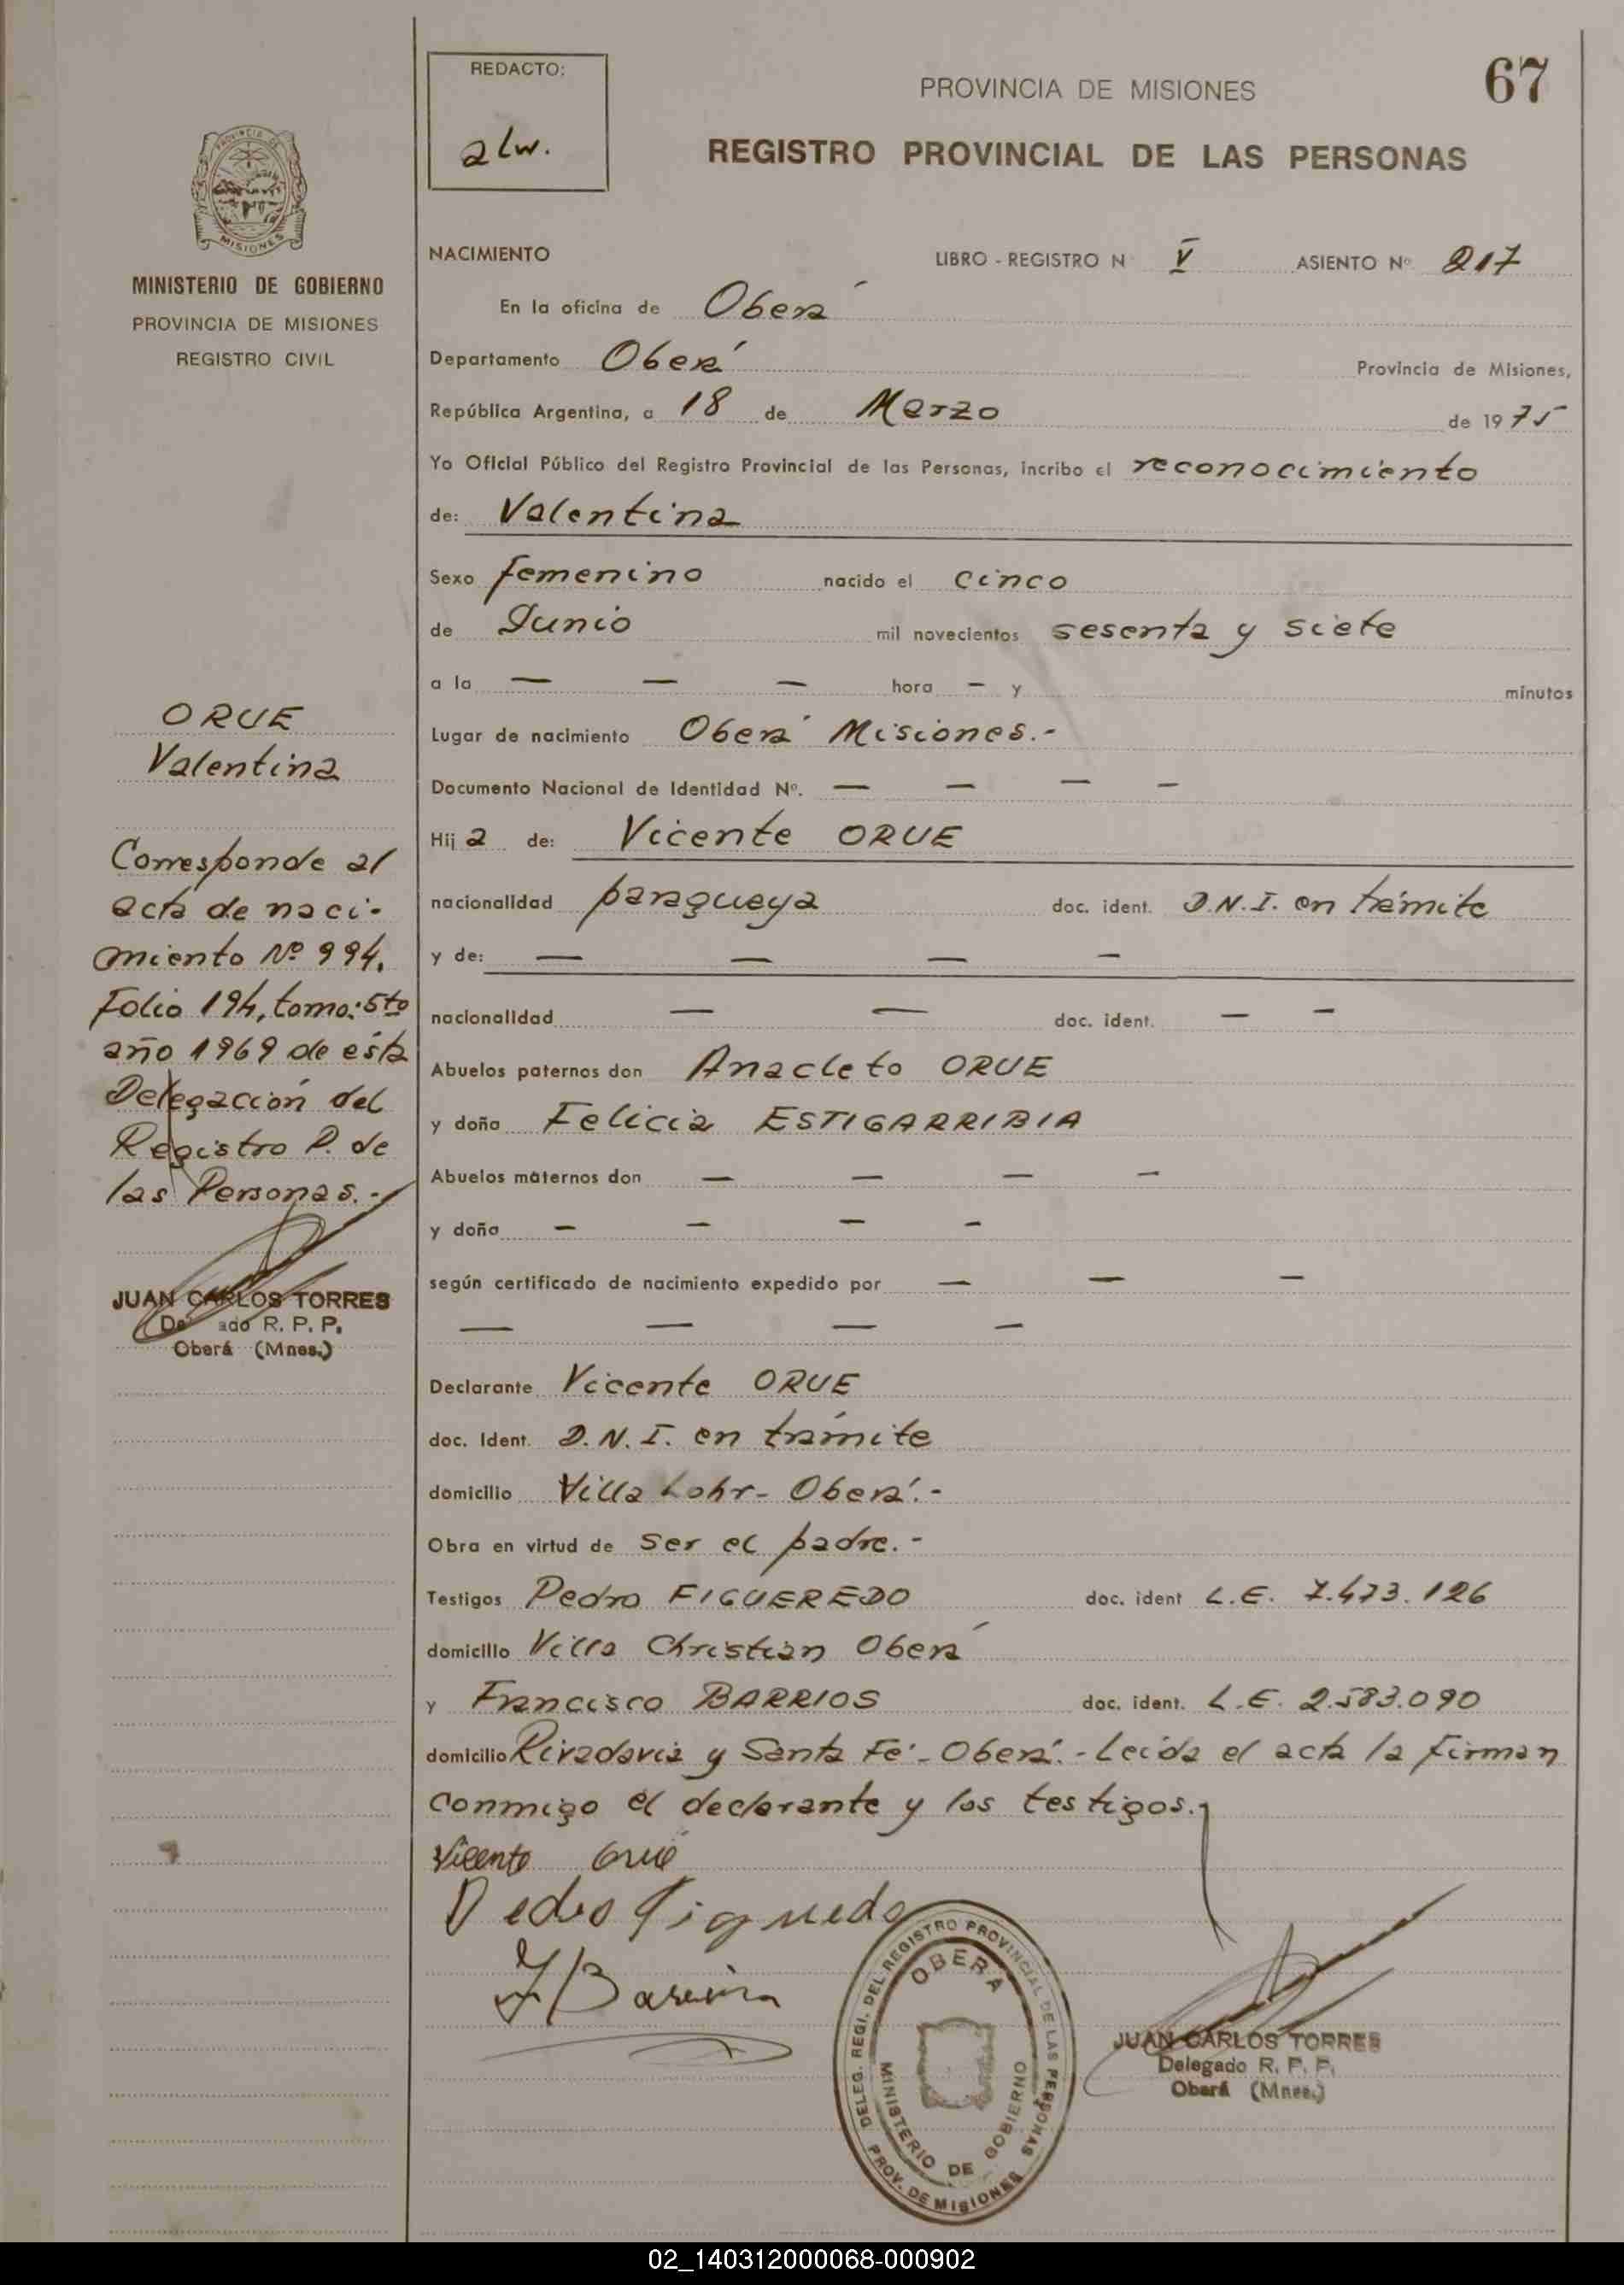 REDACTO:
alw.
PROVINCIA DE MISIONES
67
REGISTRO PROVINCIAL DE LAS PERSONAS
PROVINCIA DE
MISIONES
MINISTERIO DE GOBIERNO
PROVINCIA DE MISIONES
REGISTRO CIVIL
NACIMIENTO LIBRO - REGISTRO N V ASIENTO Nº 217
En la oficina de Oberá
Departamento Oberá Provincia de Misiones,
República Argentina, a 18 de Marzo de 1975
Yo Oficial Público del Registro Provincial de las Personas, incribo el reconocimiento
de: Valentina
Sexo femenino nacido el cinco
de Junio mil novecientos sesenta y siete
a la — — — hora — y minutos
Lugar de nacimiento Oberá Misiones.-
Documento Nacional de Identidad Nº. — — — —
Hija de: Vicente ORUE
nacionalidad paragueya doc. ident. D.N.I. en trámite
y de: — — — —
nacionalidad — — doc. ident. — —
Abuelos paternos don Anacleto ORUE
y doña Felicia ESTIGARRIBIA
Abuelos maternos don — — — —
y doña — — — —
según certificado de nacimiento expedido por — — —
— — — —
Declarante Vicente ORUE
doc. Ident. D.N.I. en trámite
domicilio Villa Lohr- Oberá.-
Obra en virtud de ser el padre.-
Testigos Pedro FIGUEREDO doc. ident L.E. 7.473.126
domicilio Villa Christian Oberá
y Francisco BARRIOS doc. ident. L.E. 2.583.090
domicilio Rivadavia y Santa Fé - Oberá.- Leída el acta la firman
conmigo el declarante y los testigos.
Vicente Orué
Pedro Figueredo
ORUE
Valentina
Corresponde al
acta de naci-
miento Nº 994,
Folio 194, tomo: 5to
año 1969 de ésta
Delegación del
Registro P. de
las Personas.-
JUAN CARLOS TORRES
De ado R. P. P.
Oberá (Mnes.)
DELEG. REGI. DEL REGISTRO PROVINCIAL DE LAS PERSONAS
OBERA
MINISTERIO DE GOBIERNO
PROV. DE MISIONES
JUAN CARLOS TORRES
Delegado R. P. P.
Oberá (Mnes.)
02_140312000068-000902